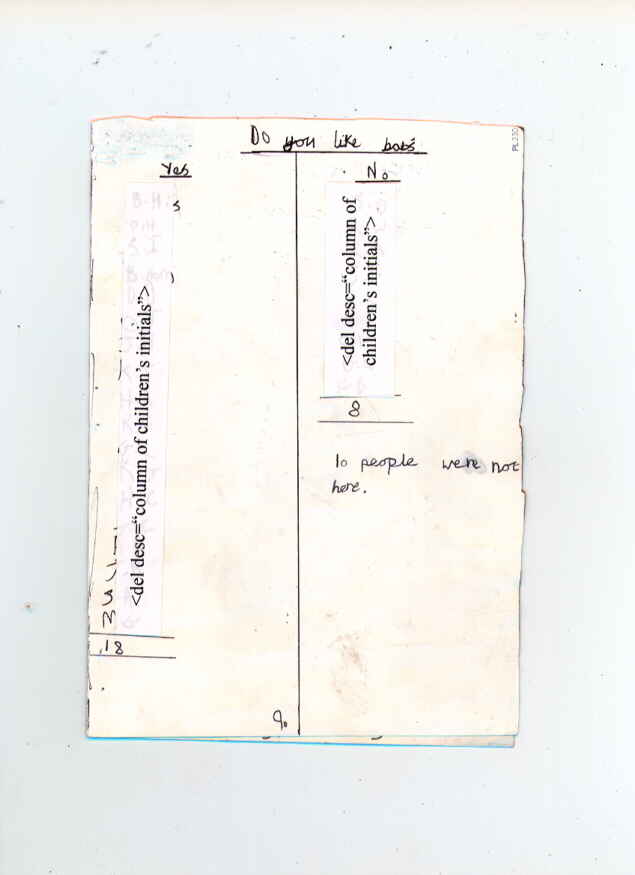 PL330
Do you like bobs
Yes
B.H
S.I
<del desc="column of children's initials">
18
9.
No
<del desc="column of
children's initials">
8
10 people were not
here.